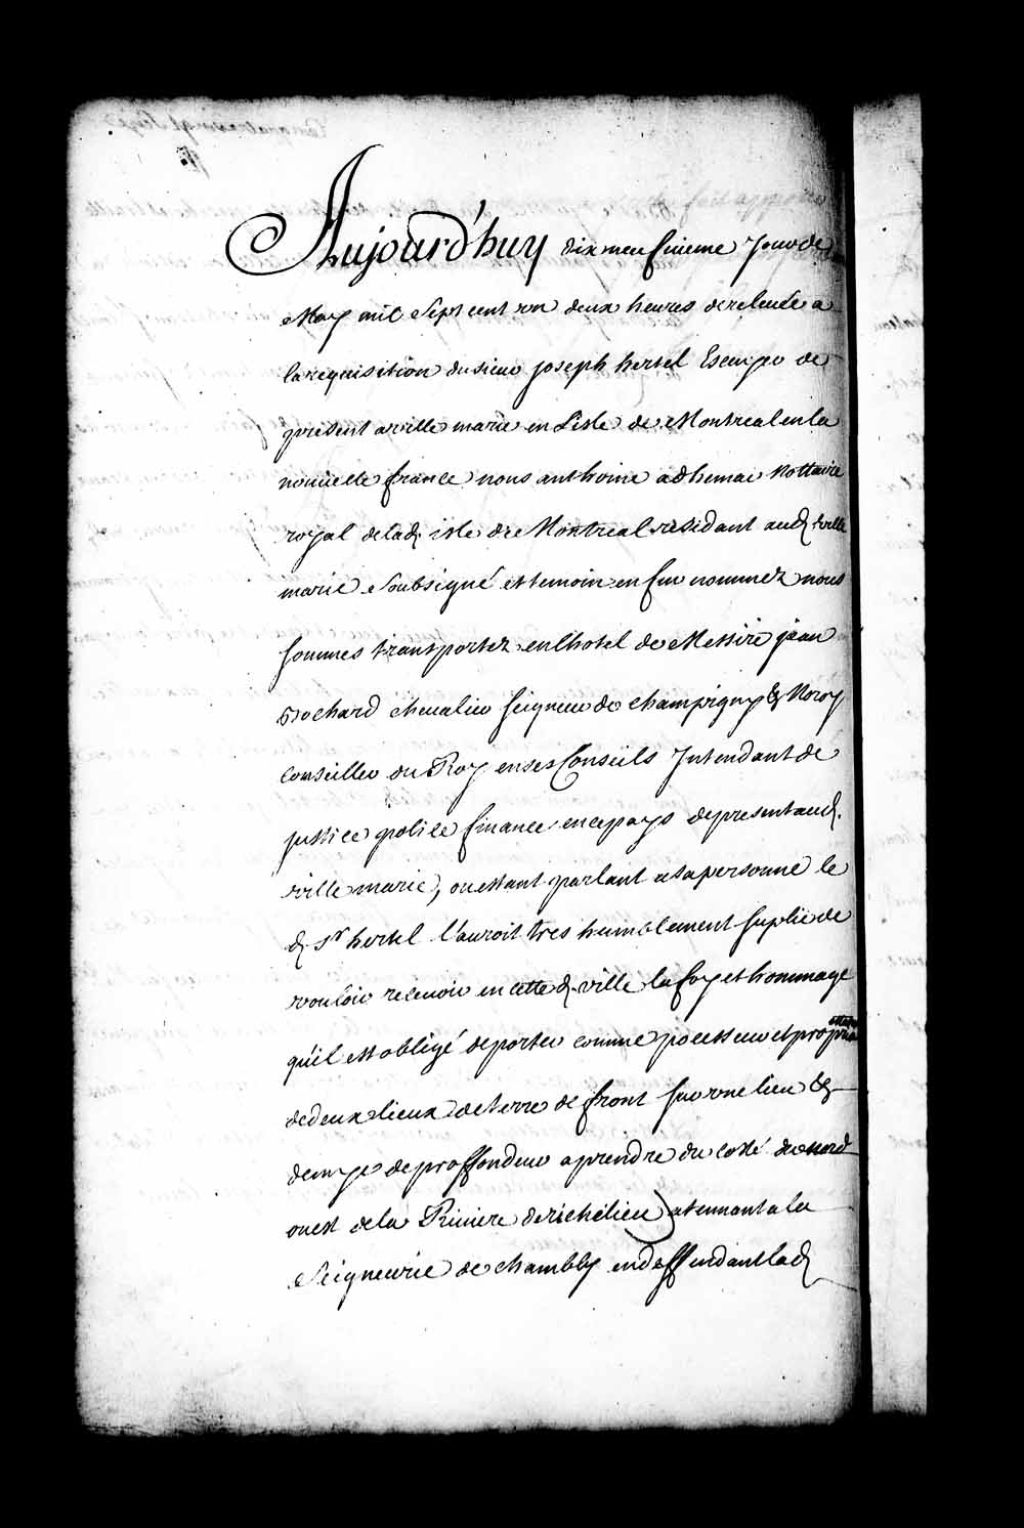 Aujourd'huy dix neufuieme Jour de
May mil Sept cent un deux heures de releuée a
la requisition du sieur joseph hertel Escuyer de
present a ville marie en Lisle de Montreal en la
nouuelle france nous anthoine adhemar Nottaire
royal de lad. isle de Montreal residant aud. ville
marie Soubsigné et temoin en fin nommez nous
sommes transportez en lhotel de Messire jean
Bochard cheualier seigneur de champigny & Noroy
Conseiller du Roy en ses Conseils Jntendant de
justice police finance en ce pays de present aud.
ville marie, ou estant parlant a sa personne le
d. sr hertel l'auroit tres humblement suplié de
vouloir receuoir en cette d. ville la foy et hommage
qu'il est obligé de porter comme possesseur et
de deux lieux de terre de front sur vne lieu &
demye de proffondeur a prendre du costé du nord
ouest de la Riuiere de richelieu atennant a la
Seigneurie de chambly en deffendant lad.